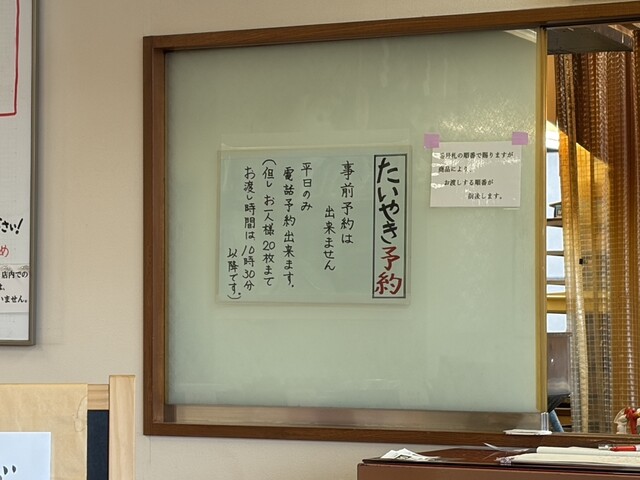 たいやき予約
事前予約は
出来ません
平日のみ
電話予約出来ます。
(但しお一人様20枚まで
お渡し時間は10時30分
以降です。)
番号札の順番で賜りますが
商品により、
お渡しする順番が
前後します。
ださい!
め
店内での
いません。